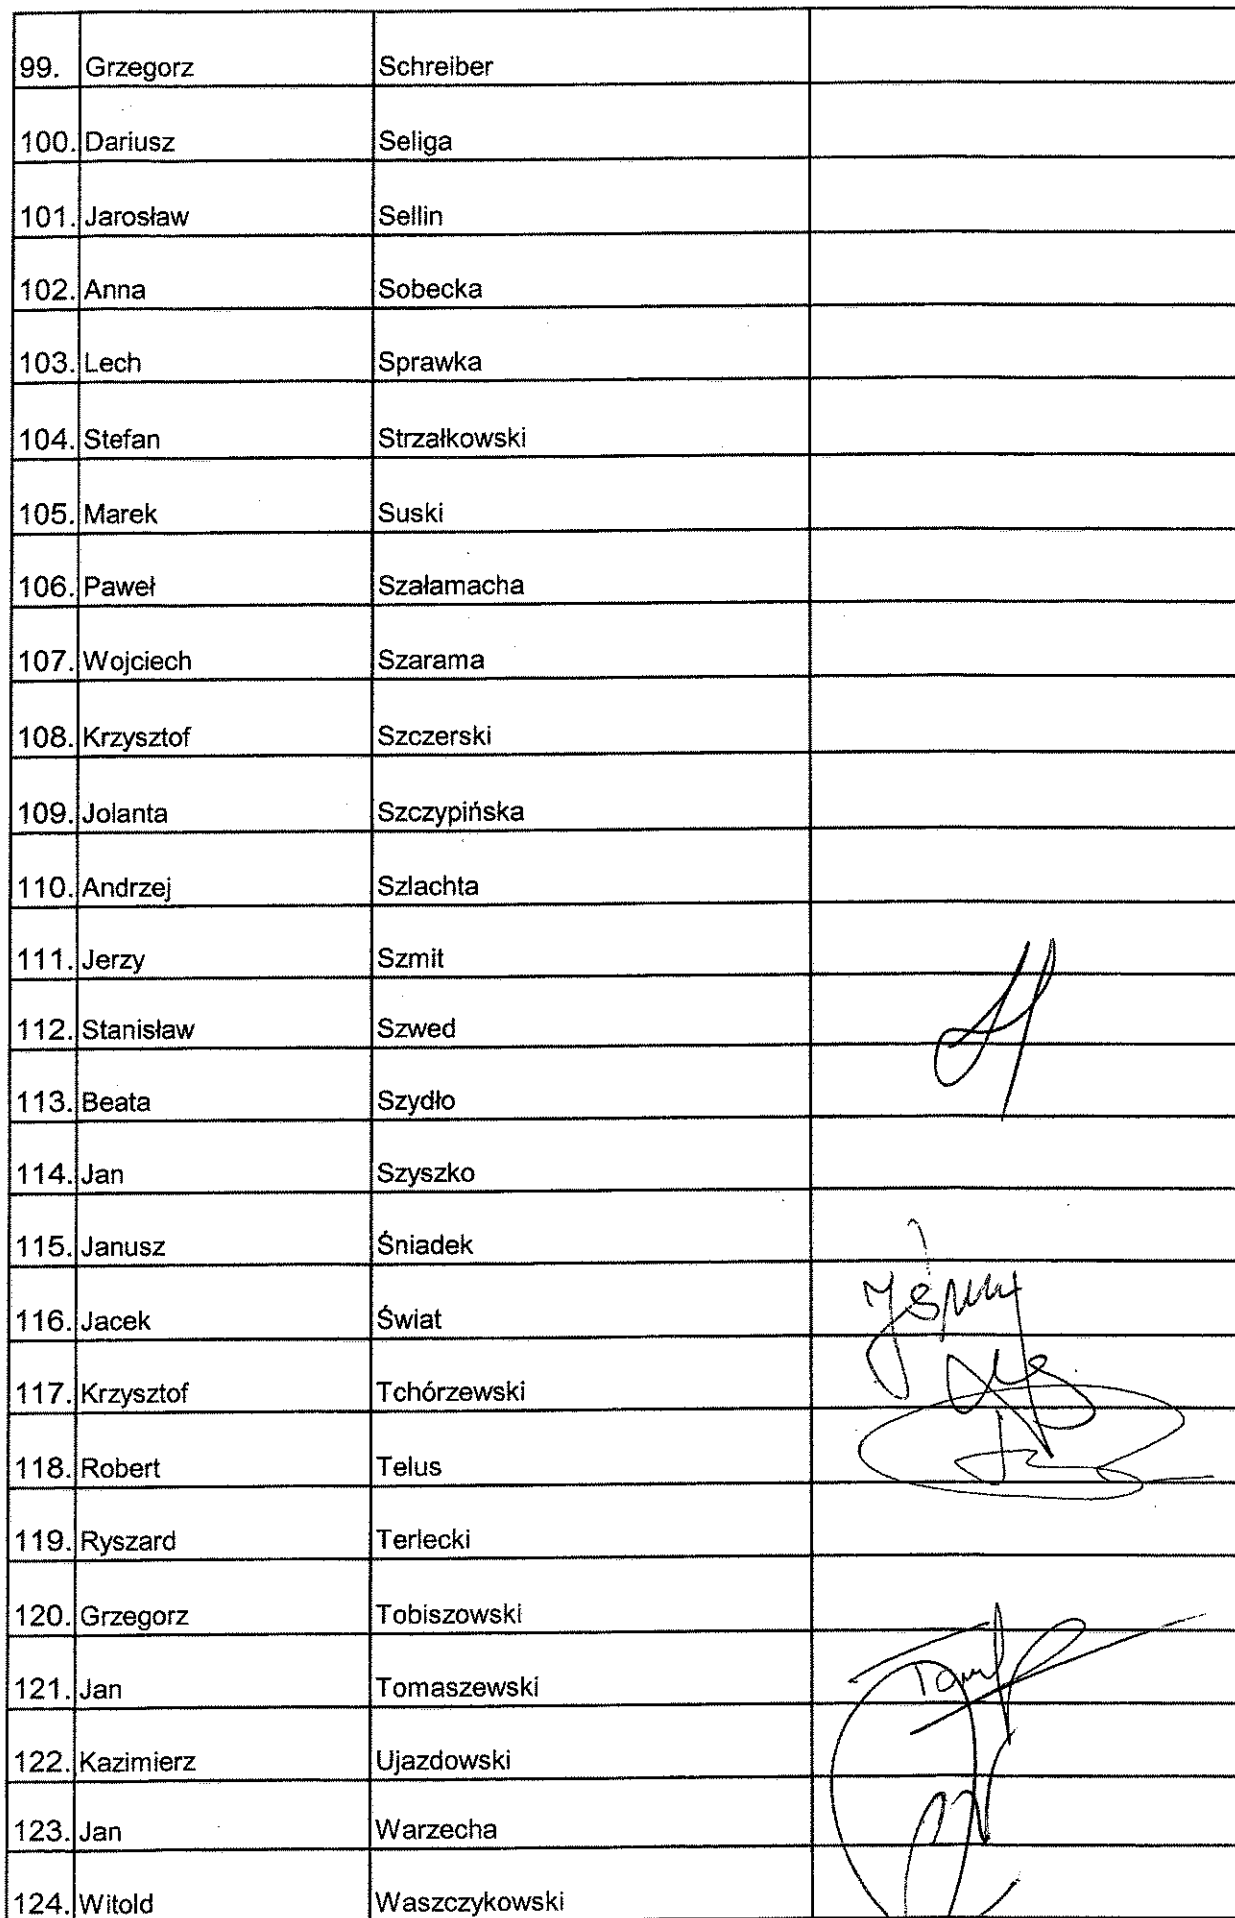 99. Grzegorz Schreiber
100. Dariusz Seliga
101. Jarosław Sellin
102. Anna Sobecka
103. Lech Sprawka
104. Stefan Strzałkowski
105. Marek Suski
106. Paweł Szałamacha
107. Wojciech Szarama
108. Krzysztof Szczerski
109. Jolanta Szczypińska
110. Andrzej Szlachta
111. Jerzy Szmit
112. Stanisław Szwed
113. Beata Szydło
114. Jan Szyszko
115. Janusz Śniadek
116. Jacek Świat
117. Krzysztof Tchórzewski
118. Robert Telus
119. Ryszard Terlecki
120. Grzegorz Tobiszowski
121. Jan Tomaszewski
122. Kazimierz Ujazdowski
123. Jan Warzecha
124. Witold Waszczykowski